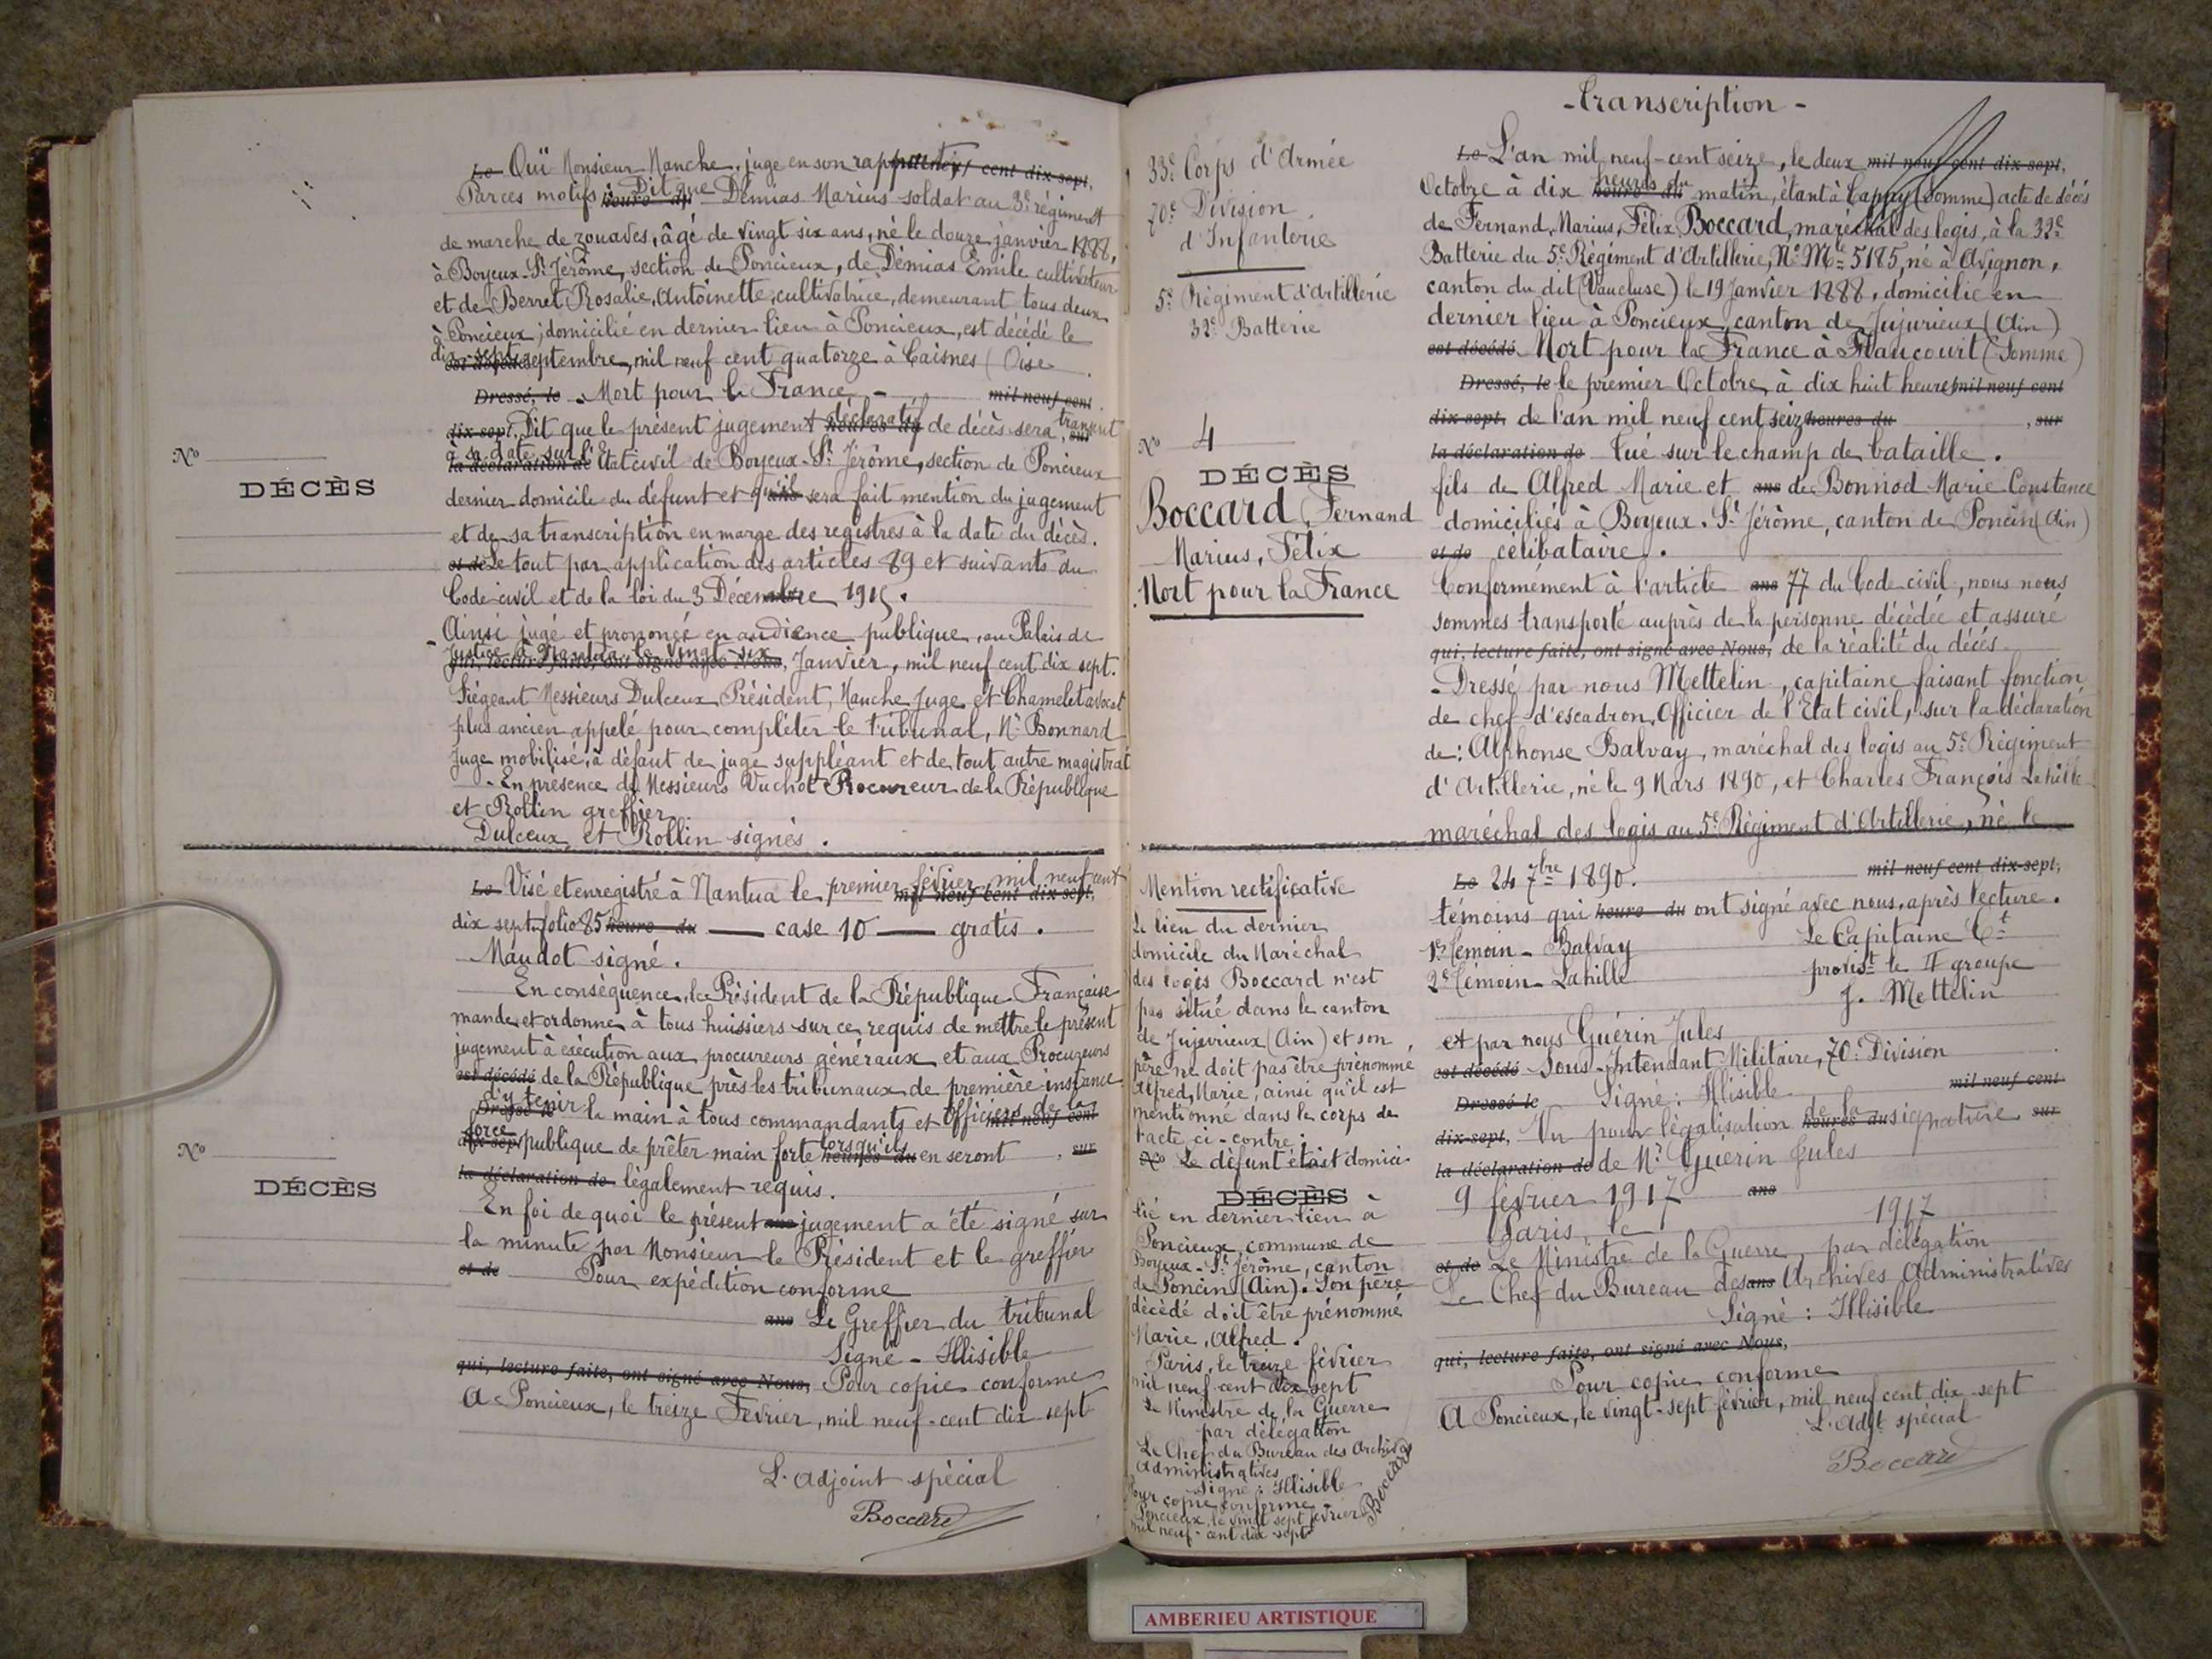 Le Ouï Monsieur Manche, juge en son rapport mil neuf cent dix-sept,
Par ces motifs : Dit que heure du Démias Marius soldat au 3e régiment
de marche de zouaves, âgé de vingt six ans, né le douze janvier 1888,
à Boyeux-St Jérôme, section de Poncieux, de Démias Emile cultivateur
et de Berret Rosalie, Antoinette, cultivatrice, demeurant tous deux
à Poncieux ; domicilié en dernier lieu à Poncieux, est décédé le
dix-sept est décédé septembre, mil neuf cent quatorze à Caisnes (Oise
Dressé, le - Mort pour la France - mil neuf cent
dix-sept, Dit que le présent jugement déclaratif heures du de décès sera transcrit, sur
à sa date sur l' la déclaration de Etat civil de Boyeux-St Jérôme, section de Poncieux
N°
DÉCÈS
dernier domicile du défunt et qu'il ans sera fait mention du jugement
et de sa transcription en marge des registres à la date du décès.
et de Le tout par application des articles 89 et suivants du
Code civil et de la loi du 3 Décembre ans 1915.
Ainsi jugé et prononcé en audience publique, au Palais de
Justice à Nantua, le vingt-six qui, lecture faite, ont signé avec Nous, Janvier, mil neuf cent dix sept.
Siégeant Messieurs Dulceux Président, Manche Juge et Chamelet avocat
plus ancien appelé pour compléter le tribunal, Mr Bonnard
Juge mobilisé, à défaut de juge suppléant et de tout autre magistrat
- En présence de Messieurs Vuchot Procureur de la République
et Rollin greffier.
Dulceux et Rollin signés.
Le Visé et enregistré à Nantua le premier février mil neuf cent mil neuf cent dix-sept,
dix sept folio 85 heure du — case 10 — gratis.
Maudot signé.
En conséquence, le Président de la République Française
mande et ordonne à tous huissiers sur ce requis de mettre le présent
jugement à exécution aux procureurs généraux et aux Procureurs
est décédé de la République près les tribunaux de première instance
d'y tenir Dressé le la main à tous commandants et Officiers de la mil neuf cent
force dix-sept publique de prêter main forte lorsqu'ils heures du en seront, sur
N°
la déclaration de légalement requis.
DÉCÈS
En foi de quoi le présent ans jugement a été signé sur
la minute par Monsieur le Président et le greffier
et de Pour expédition conforme
ans Le Greffier du tribunal
Signé - Illisible
qui, lecture faite, ont signé avec Nous, Pour copie conforme
A Poncieux, le treize Février, mil neuf-cent dix sept
L'adjoint spécial
Boccard
- Transcription -
33e Corps d'Armée
70e Division
d'Infanterie
5e Régiment d'artillerie
32e Batterie
N° 4
DÉCÈS
Boccard Fernand
Marius, Félix
Mort pour la France
Le L'an mil neuf-cent seize, le deux mil neuf cent dix-sept,
Octobre à dix heures du heure du matin, étant à Cappy (Somme) acte de décés
de Fernand, Marius, Félix Boccard, maréchal des logis, à la 32e
Batterie du 5e Régiment d'Artillerie, No Mle 5185, né à Avignon,
canton du dit (Vaucluse) le 19 Janvier 1888, domicilié en
dernier lieu à Poncieux, canton de Jujurieux (Ain)
est décédé Mort pour la France à Flaucourt (Somme)
Dressé, le le premier Octobre, à dix huit heures mil neuf cent
dix-sept, de l'an mil neuf cent seize heures du, sur
la déclaration de Tué sur le champ de bataille.
fils de Alfred Marie et ans de Bonnod Marie Constance
domiciliés à Boyeux-St Jérôme, canton de Poncin (Ain)
et de célibataire.
Conformément à l'article ans 77 du Code civil, nous nous
sommes transporté auprès de la personne décédée et assuré
qui, lecture faite, ont signé avec Nous, de la réalité du décés.
- Dressé par nous Mettelin, capitaine faisant fonction
de chef d'escadron, Officier de l'Etat civil, sur la déclaration
de : Alphonse Balvay, maréchal des logis au 5e Régiment
d'Artillerie, né le 9 Mars 1890, et Charles François Lahille
maréchal des logis au 5e Régiment d'Artillerie, né le
Mention rectificative
Le lieu du dernier
domicile du Maréchal
des logis Boccard n'est
pas situé dans le canton
de Jujurieux (Ain) et son
père ne doit pas être prénommé
Alfred, Marie, ainsi qu'il est
mentionné dans le corps de
l'acte ci-contre :
N° Le défunt était domici-
DÉCÈS
lié en dernier lieu à
Poncieux, commune de
Boyeux-St Jérôme, canton
de Poncin (Ain). Son père
décédé doit être prénommé
Marie, Alfred.
Paris, le treize février
mil neuf-cent dix sept
Le Ministre de la Guerre
par délégation
Le Chef du Bureau des Archives
Administratives
Signé : Illisible
Pour copie conforme
Poncieux, le vingt sept février
mil neuf-cent dix-sept
Boccard
Le 24 7bre 1890. mil neuf cent dix-sept,
témoins qui heure du ont signé avec nous, après lecture.
1er Témoin - Balvay Le Capitaine Ct
2e Témoin - Lahille provist le II groupe
J. Mettelin
et par nous Guérin Jules
est décédé Sous-Intendant Militaire, 70e Division
Dressé le Signé : Illisible mil neuf cent
dix-sept, Vu pour légalisation de la heures du signature sur
la déclaration de de Mr Guérin Jules
9 février 1917 ans
Paris, le 1917
et de Le Ministre de la Guerre, par délégation
Le Chef du Bureau des ans Archives Administratives
Signé : Illisible
qui, lecture faite, ont signé avec Nous,
Pour copie conforme
A Poncieux, le vingt-sept février, mil neuf cent dix-sept
L'Adjt spécial
Boccard
AMBERIEU ARTISTIQUE